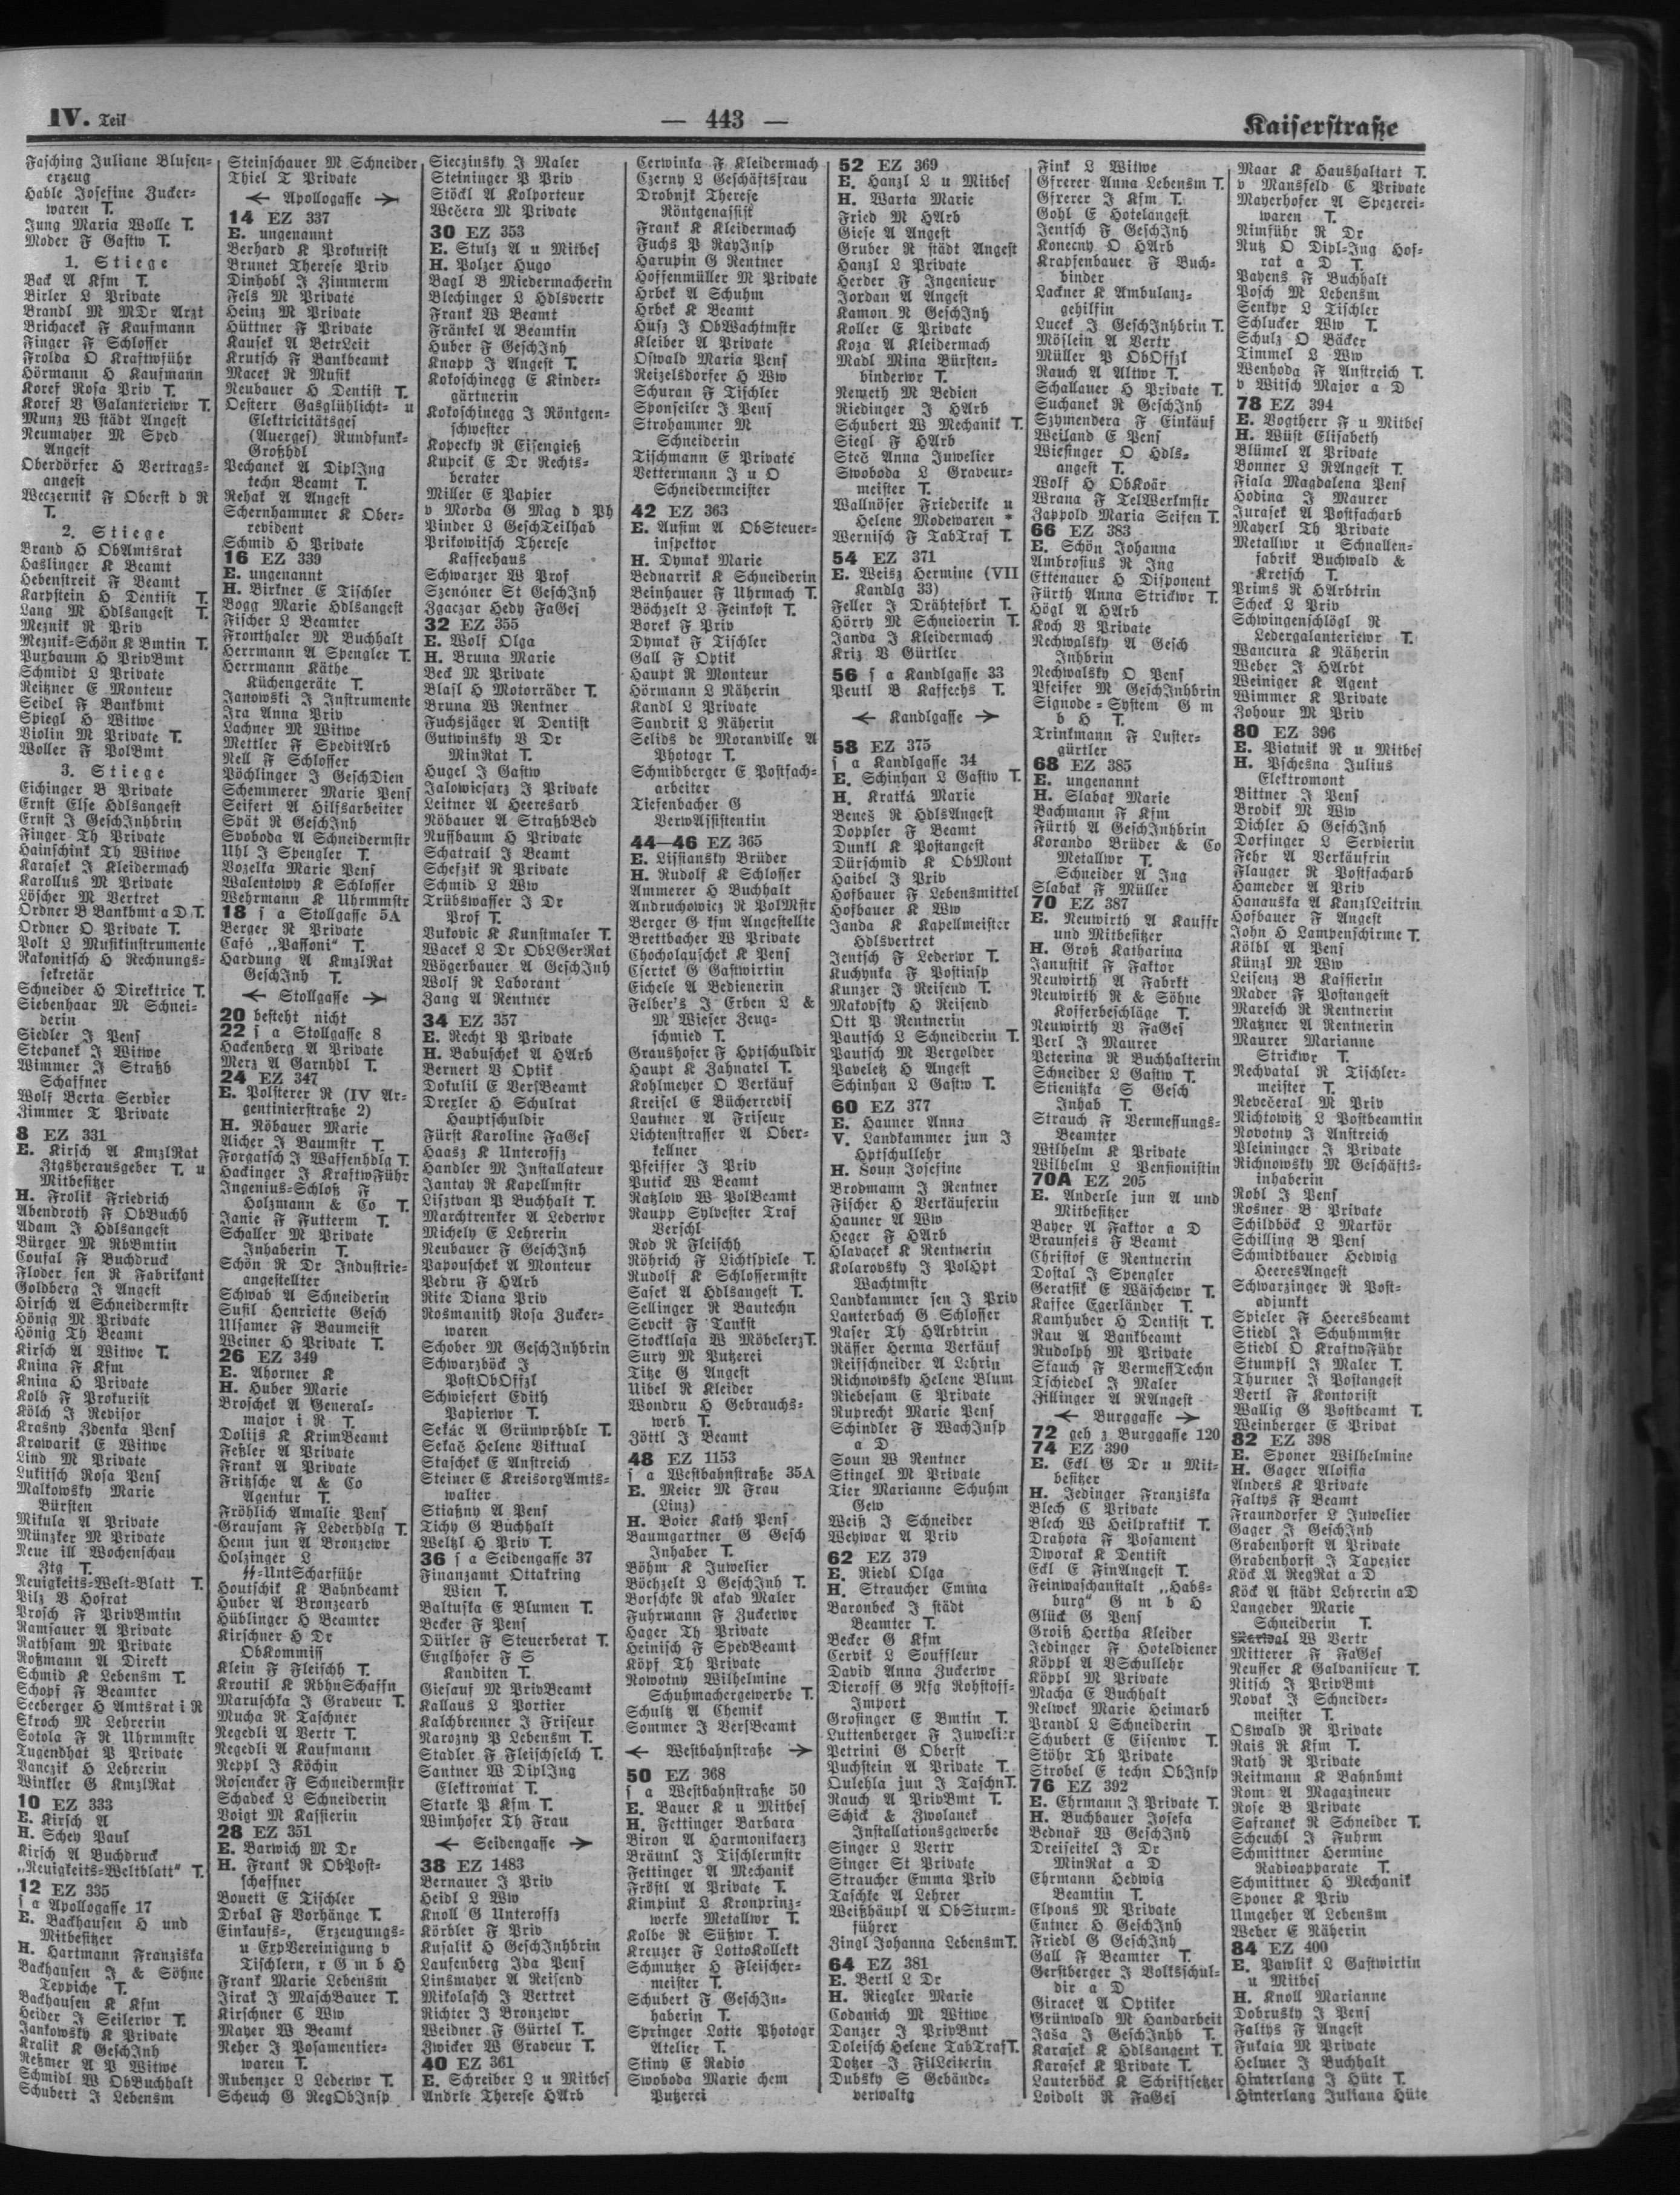 IV. Teil
— 443 —
Kaiserstraße
Fasching Juliane Blusen-
erzeug
Hable Josefine Zucker-
waren T.
Jung Maria Wolle T.
Moder F Gastw T.
1. Stiege
Back A Kfm T.
Birler L Private
Brandl M MDr Arzt
Brichacek F Kaufmann
Finger F Schlosser
Frolda O Kraftwführ
Hörmann H Kaufmann
Koref Rosa Priv T.
Koref V Galanteriewr T.
Munz W städt Angest
Neumayer M Sped
Angest
Oberdörfer H Vertrags-
angest
Weczernik F Oberst d R
T.
2. Stiege
Brand H ObAmtsrat
Haslinger K Beamt
Hebenstreit F Beamt
Karpstein H Dentist T.
Lang M Hdlsangest T.
Meznik R Priv
Meznik-Schön K Bmtin T.
Puxbaum H PrivBmt
Schmidt L Private
Reitzner E Monteur
Seidel F Bankbmt
Spiegl H Witwe
Violin M Private T.
Woller F PolBmt
3. Stiege
Eichinger B Private
Ernst Else Hdlsangest
Ernst J GeschJnhbrin
Finger Th Private
Hainschink Th Witwe
Karasek J Kleidermach
Karollus M Private
Löscher M Vertret
Ordner B Bankbmt a D T.
Ordner O Private T.
Polt L Musikinstrumente
Rakonitsch H Rechnungs-
sekretär
Schneider H Direktrice T.
Siebenhaar M Schnei-
derin
Siedler J Pens
Stepanek J Witwe
Wimmer J Straßb
Schaffner
Wolf Berta Servier
Zimmer T Private
8 EZ 331
E. Kirsch A KmzlRat
Ztgsherausgeber T. u
Mitbesitzer
H. Frolik Friedrich
Abendroth F ObBuchh
Adam J Hdlsangest
Bürger M RbBmtin
Cousal F Buchdruck
Floder sen R Fabrikant
Goldberg J Angest
Hirsch A Schneidermstr
Hönig M Private
Hönig Th Beamt
Kirsch A Witwe T.
Knina F Kfm
Knina H Private
Kolb F Prokurist
Kölch J Revisor
Krasny Zdenka Pens
Krawarik E Witwe
Lind M Private
Lukitsch Rosa Pens
Malkowsky Marie
Bürsten
Mikula A Private
Münzker M Private
Neue ill Wochenschau
Ztg T.
Neuigkeits-Welt-Blatt T.
Pilz V Hofrat
Prosch F PrivBmtin
Ramsauer A Private
Rathsam M Private
Roßmann A Direkt
Schmid K Lebensm T.
Schopf F Beamter
Seeberger H Amtsrat i R
Skroch M Lehrerin
Sotola F R Uhrmmstr
Tugendhat P Private
Vanczik H Lehrerin
Winkler G KmzlRat
10 EZ 333
E. Kirsch A
H. Schey Paul
Kirsch A Buchdruck
„Neuigkeits-Weltblatt“ T.
12 EZ 335
s a Apollogasse 17
E. Backhausen H und
Mitbesitzer
H. Hartmann Franziska
Backhausen J & Söhne
Teppiche T.
Backhausen K Kfm
Heider J Seilerwr T.
Jankowsky K Private
Kralik K GeschJnh
Reßmer A P Witwe
Schmidl W ObBuchhalt
Schubert J Lebensm
Steinschauer M Schneider
Thiel T Private
← Apollogasse →
14 EZ 337
E. ungenannt
Berhard K Prokurist
Brunet Therese Priv
Dinhobl J Zimmerm
Fels M Private
Heinz M Private
Hüttner F Private
Kausek A BetrLeit
Krutsch F Bankbeamt
Macek R Musik
Neubauer H Dentist T.
Oesterr Gasglühlicht- u
Elektricitätsges
(Auerges) Rundfunk-
Großhdl
Pechanek A DiplJng
techn Beamt T.
Rehak A Angest
Schernhammer K Ober-
revident
Schmid H Private
16 EZ 339
E. ungenannt
H. Birkner E Tischler
Bogg Marie Hdlsangest
Fischer L Beamter
Fronthaler M Buchhalt
Herrmann A Spengler T.
Herrmann Käthe
Küchengeräte T.
Janowski J Instrumente
Ira Anna Priv
Lachner M Witwe
Mettler F SpeditArb
Nell F Schlosser
Pöchlinger J GeschDien
Schemmerer Marie Pens
Seifert A Hilfsarbeiter
Spät R GeschJnh
Svoboda A Schneidermstr
Uhl J Spengler T.
Vozelka Marie Pens
Walentowy K Schlosser
Wehrmann K Uhrmmstr
18 s a Stollgasse 5A
Berger R Private
Café „Passoni“ T.
Hardung A KmzlRat
GeschJnh T.
← Stollgasse →
20 besteht nicht
22 s a Stollgasse 8
Hackenberg A Private
Merz A Garnhdl T.
24 EZ 347
E. Polsterer R (IV Ar-
gentinierstraße 2)
H. Röbauer Marie
Aicher J Baumstr T.
Forgatsch J Waffenhdlg T.
Hackinger J KraftwFühr
Ingenius-Schloß F
Holzmann & Co T.
Janie F Futterm T.
Schaller M Private
Inhaberin T.
Schön R Dr Industrie-
angestellter
Schwab A Schneiderin
Susil Henriette Gesch
Ulsamer F Baumeist
Weiner H Private T.
26 EZ 349
E. Ahorner K
H. Huber Marie
Broschek A General-
major i R T.
Dolijs K KrimBeamt
Feßler A Private
Frank A Private
Fritzsche A & Co
Agentur T.
Fröhlich Amalie Pens
Grausam F Lederhdlg T.
Henn jun A Bronzewr
Holzinger L
SS-UntScharführ
Houtschik K Bahnbeamt
Huber A Bronzearb
Hüblinger H Beamter
Kirschner H Dr
ObKommiss
Klein F Fleischh T.
Kroutil K RbhnSchaffn
Maruschka J Graveur T.
Mucha R Taschner
Negedli A Vertr T.
Negedli A Kaufmann
Neppl J Köchin
Rosencker F Schneidermstr
Schadeck L Schneiderin
Voigt M Kassierin
28 EZ 351
E. Barwich M Dr
H. Frank R ObPost-
schaffner
Bonett E Tischler
Drbal F Vorhänge T.
Einkaufs-, Erzeugungs-
u ExpVereinigung v
Tischlern, r G m b H
Frank Marie Lebensm
Jirak J MaschBauer T.
Kirschner C Ww
Mayer W Beamt
Reher J Posamentier-
waren T.
Rubenzer L Lederwr T.
Scheuch G RegObJnsp
Sieczinsky J Maler
Steininger P Priv
Stöckl A Kolporteur
Večera M Private
30 EZ 353
E. Stulz A u Mitbes
H. Polzer Hugo
Bagl B Miedermacherin
Blechinger L Hdlsvertr
Frank W Beamt
Fränkel A Beamtin
Huber F GeschJnh
Knapp J Angest T.
Kokoschinegg E Kinder-
gärtnerin
Kokoschinegg J Röntgen-
schwester
Kopecky R Eisengieß
Kupcik E Dr Rechts-
berater
Miller E Papier
v Morda G Mag d Ph
Pinder L GeschTeilhab
Prikowitsch Therese
Kaffeehaus
Schwarzer W Prof
Szenóner St GeschJnh
Zgaczar Hedy FaGes
32 EZ 355
E. Wolf Olga
H. Bruna Marie
Beck M Private
Blasl H Motorräder T.
Bruna W Rentner
Fuchsjäger A Dentist
Gutwinsky V Dr
MinRat T.
Hugel J Gastw
Jalowicsarz J Private
Leitner A Heeresarb
Röbauer A StraßbBed
Nussbaum H Private
Schatrail J Beamt
Schefzik R Private
Schmid L Ww
Trübswasser J Dr
Prof T.
Vukovic K Kunstmaler T.
Wacek L Dr ObLGerRat
Wögerbauer A GeschJnh
Wolf R Laborant
Zang A Rentner
34 EZ 357
E. Recht P Private
H. Babuschek A HArb
Bernert V Optik
Dokulil E VersBeamt
Drexler H Schulrat
Hauptschuldir
Fürst Karoline FaGes
Haasz K Unteroffz
Handler M Installateur
Jantay R Kapellmstr
Lisztwan P Buchhalt T.
Marchtrenker A Lederwr
Michely E Lehrerin
Neubauer F GeschJnh
Papouschek A Monteur
Pedru F HArb
Rite Diana Priv
Rosmanith Rosa Zucker-
waren
Schober M GeschJnhbrin
Schwarzböck J
PostObOffzl
Schwiefert Edith
Papierwr T.
Sekác A Grünwrhdlr T.
Sekač Helene Viktual
Staschek E Anstreich
Steiner E KreisorgAmts-
walter
Stiaßny A Pens
Tichy G Buchhalt
Weltzl H Priv T.
36 s a Seidengasse 37
Finanzamt Ottakring
Wien T.
Baltuska E Blumen T.
Becker F Pens
Dürler F Steuerberat T.
Englhofer F S
Kanditen T.
Giesauf M PrivBeamt
Kallaus L Portier
Kalchbrenner J Friseur
Narozny P Lebensm T.
Stadler F Fleischselch T.
Santner W DiplJng
Elektromat T.
Starke P Kfm T.
Wimhofer Th Frau
← Seidengasse →
38 EZ 1483
Bernauer J Priv
Heidl L Ww
Knoll G Unteroffz
Körbler F Priv
Kusalik H GeschJnhbrin
Laufenberg Ida Pens
Linsmayer A Reisend
Mikolasch J Vertret
Richter J Bronzewr
Weidner F Gürtel T.
Zwicker W Graveur T.
40 EZ 361
E. Schreiber L u Mitbes
Andrle Therese HArb
Cerwinka F Kleidermach
Czerny L Geschäftsfrau
Drobnik Therese
Röntgenassist
Frank K Kleidermach
Fuchs P RayJnsp
Harupin G Rentner
Hoffenmüller M Private
Hrbek A Schuhm
Hrbek K Beamt
Husz J ObWachtmstr
Kleiber A Private
Oswald Maria Pens
Reizelsdorfer H Ww
Schuran F Tischler
Sponseiler J Pens
Strohammer M
Schneiderin
Tischmann E Private
Vettermann J u O
Schneidermeister
42 EZ 363
E. Ausim A ObSteuer-
inspektor
H. Dymak Marie
Bednarrik K Schneiderin
Beinhauer F Uhrmach T.
Böchzelt L Feinkost T.
Borek F Priv
Dymak F Tischler
Gall F Optik
Haupt R Monteur
Hörmann L Näherin
Kandl L Private
Sandrik L Näherin
Selids de Moranville A
Photogr T.
Schmidberger E Postfach-
arbeiter
Tiefenbacher G
VerwAssistentin
44—46 EZ 365
E. Lissiansky Brüder
H. Rudolf K Schlosser
Ammerer H Buchhalt
Andruchowicz R PolMstr
Berger G kfm Angestellte
Brettbacher W Private
Chocholauschek K Pens
Csertek G Gastwirtin
Eichele A Bedienerin
Felber's J Erben L &
M Wieser Zeug-
schmied T.
Graushofer F Hptschuldir
Haupt K Zahnatel T.
Kohlmeyer O Verkäuf
Kreisel E Bücherrevis
Lautner A Friseur
Lichtenstrasser A Ober-
kellner
Pfeiffer J Priv
Putick W Beamt
Ratzlow W PolBeamt
Raupp Sylvester Traf
Verschl
Rod R Fleischh
Röhrich F Lichtspiele T.
Rudolf K Schlossermstr
Sasek A Hdlsangest T.
Sellinger R Bautechn
Sevcik F Tankst
Stocklasa W MöbelerzT.
Sury M Putzerei
Titze G Angest
Uibel R Kleider
Wondru H Gebrauchs-
werb T.
Zöttl J Beamt
48 EZ 1153
s a Westbahnstraße 35A
E. Meier M Frau
(Linz)
H. Boier Kath Pens
Baumgartner G Gesch
Inhaber T.
Böhm K Juwelier
Böchzelt L GeschJnh T.
Borschke R akad Maler
Fuhrmann F Zuckerwr
Hager Th Private
Heinisch F SpedBeamt
Köpf Th Private
Nowotny Wilhelmine
Schuhmachergewerbe T.
Schultz A Chemik
Sommer J VersBeamt
← Westbahnstraße →
50 EZ 368
s a Westbahnstraße 50
E. Bauer K u Mitbes
H. Fettinger Barbara
Biron A Harmonikaerz
Bräunl J Tischlermstr
Fettinger A Mechanik
Fröstl A Private T.
Kimpink L Kronprinz-
werke Metallwr T.
Kolbe R Süßwr T.
Kreuzer F LottoKollekt
Schmutzer H Fleischer-
meister T.
Schubert F GeschJn-
haberin T.
Springer Lotte Photogr
Atelier T.
Stiny E Radio
Swoboda Marie chem
Putzerei
52 EZ 369
E. Hanzl L u Mitbes
H. Warta Marie
Fried M HArb
Giese A Angest
Gruber R städt Angest
Hanzl L Private
Herder F Ingenieur
Jordan A Angest
Kamon R GeschJnh
Koller E Private
Koza A Kleidermach
Madl Mina Bürsten-
binderwr T.
Nemeth M Bedien
Riedinger J HArb
Schubert W Mechanik T.
Siegl F HArb
Steč Anna Juwelier
Swoboda L Graveur-
meister T.
Wallnöser Friederike u
Helene Modewaren *
Wernisch F TabTraf T.
54 EZ 371
E. Weisz Hermine (VII
Kandlg 33)
Feller J Drähtefbrk T.
Hörry M Schneiderin T.
Janda J Kleidermach
Kriz V Gürtler
56 s a Kandlgasse 33
Peutl B Kaffechs T.
← Kandlgasse →
58 EZ 375
s a Kandlgasse 34
E. Schinhan L Gastw T.
H. Kratká Marie
Beneš R HdlsAngest
Doppler F Beamt
Dunkl K Postangest
Dürschmid K ObMont
Haibel J Priv
Hofbauer F Lebensmittel
Hofbauer K Ww
Janda K Kapellmeister
Hdlsvertret
Jentsch F Lederwr T.
Kuchynka F Postinsp
Kunzer J Reisend T.
Makovsky H Reisend
Ott P Rentnerin
Pautsch L Schneiderin T.
Pautsch M Vergolder
Paveletz H Angest
Schinhan L Gastw T.
60 EZ 377
E. Hauner Anna
V. Landkammer jun J
Hptschullehr
H. Soun Josefine
Brodmann J Rentner
Fischer H Verkäuferin
Hauner A Ww
Heger F HArb
Hlavacek K Rentnerin
Kolarovsky J PolHpt
Wachtmstr
Landkammer sen J Priv
Lauterbach G Schlosser
Naser Th HArbtrin
Näffer Herma Verkäuf
Reifschneider A Lehrin
Richnowsky Helene Blum
Riebesam E Private
Ruprecht Marie Pens
Schindler F WachJnsp
a D
Soun W Rentner
Stingel M Private
Tier Marianne Schuhm
Gew
Weiß J Schneider
Weywar A Priv
62 EZ 379
E. Riedl Olga
H. Straucher Emma
Baronbeck J städt
Beamter T.
Becker G Kfm
Cervik L Souffleur
David Anna Zuckerwr
Dieroff G Nfg Rohstoff-
Import
Grosinger E Bmtin T.
Luttenberger F Juwelier
Petrini G Oberst
Puchstein A Private T.
Oulehla jun J TaschnT.
Rauch A PrivBmt T.
Schick & Zwolanek
Installationsgewerbe
Singer L Vertr
Singer St Private
Straucher Emma Priv
Taschke A Lehrer
Weißhäupl A ObSturm-
führer
Zingl Johanna LebensmT.
64 EZ 381
E. Bertl L Dr
H. Riegler Marie
Codanich M Witwe
Danzer J PrivBmt
Doleisch Helene TabTrafT.
Dotzer J FilLeiterin
Dubsky S Gebäude-
verwaltg
Fink L Witwe
Gfrerer Anna Lebensm T.
Gfrerer J Kfm T.
Gohl E Hotelangest
Jentsch F GeschJnh
Konecny O HArb
Krapfenbauer F Buch-
binder
Lackner K Ambulanz-
gehilfin
Lucek J GeschJnhbrin T.
Möslein A Vertr
Müller P ObOffzl
Rauch A Altwr T.
Schallauer H Private T.
Suchanek R GeschJnh
Szymendera F Einkäuf
Weiland E Pens
Wiesinger O Hdls-
angest T.
Wolf H ObKoär
Wrana F TelWerkmstr
Zappold Maria Seifen T.
66 EZ 383
E. Schön Johanna
Ambrosius R Ing
Ettenauer H Disponent
Fürth Anna Strickwr T.
Högl A HArb
Koch V Private
Nechwalsky A Gesch
Inhbrin
Nechwalsky O Pens
Pfeifer M GeschJnhbrin
Signode-System G m
b H T.
Trinkmann F Luster-
gürtler
68 EZ 385
E. ungenannt
H. Slabak Marie
Bachmann F Kfm
Fürth A GeschJnhbrin
Korando Brüder & Co
Metallwr T.
Schneider A Ing
Slabak F Müller
70 EZ 387
E. Neuwirth A Kauffr
und Mitbesitzer
H. Groß Katharina
Janustik F Faktor
Neuwirth A Fabrkt
Neuwirth R & Söhne
Kofferbeschläge T.
Neuwirth V FaGes
Perl J Maurer
Peterina R Buchhalterin
Schneider L Gastw T.
Stienitzka S Gesch
Inhab T.
Strauch F Vermessungs-
Beamter
Wilhelm K Private
Wilhelm L Pensionistin
70A EZ 205
E. Anderle jun A und
Mitbesitzer
Bayer A Faktor a D
Braunfeis F Beamt
Christof E Rentnerin
Dostal J Spengler
Geratsik E Wäschewr T.
Kaffee Egerländer T.
Kamhuber H Dentist T.
Rau A Bankbeamt
Rudolph M Private
Stauch F VermessTechn
Tschiedel J Maler
Zillinger A RAngest
← Burggasse →
72 geh z Burggasse 120
74 EZ 390
E. Eckl G Dr u Mit-
besitzer
H. Jedinger Franziska
Blech C Private
Blech W Heilpraktik T.
Drahota F Posament
Dworak K Dentist
Eckl E FinAngest T.
Feinwaschanstalt „Habs-
burg“ G m b H
Glück G Pens
Groiß Hertha Kleider
Jedinger F Hoteldiener
Köppl A VSchullehr
Köppl M Private
Macha E Buchhalt
Nelwek Marie Heimarb
Prandl L Schneiderin
Schubert E Eisenwr T.
Stöhr Th Private
Strobel E techn ObJnsp
76 EZ 392
E. Ehrmann J Private T.
H. Buchbauer Josefa
Bednař W GeschJnh
Dreiseitel J Dr
MinRat a D
Ehrmann Hedwig
Beamtin T.
Elpons M Private
Entner H GeschJnh
Friedl G GeschJnh
Gall F Beamter T.
Gerstberger J Volksschul-
dir a D
Giracek A Optiker
Grünwald M Handarbeit
Jaša J GeschJnhb T.
Karasek K Hdlsangent T.
Karasek K Private T.
Lauterböck K Schriftsetzer
Loidolt R FaGes
Maar K Haushaltart T.
v Mansfeld C Private
Mayerhofer A Spezerei-
waren T.
Nimführ R Dr
Nutz O Dipl-Ing Hof-
rat a D T.
Payens F Buchhalt
Posch M Lebensm
Senkyr L Tischler
Schlucker Ww T.
Schulz O Bäcker
Timmel L Ww
Wenhoda F Anstreich T.
v Witsch Major a D
78 EZ 394
E. Vogtherr F u Mitbes
H. Wüst Elisabeth
Blümel A Private
Bonner L RAngest T.
Fiala Magdalena Pens
Hodina J Maurer
Jurasek A Postfacharb
Mayerl Th Private
Metallwr u Schnallen-
fabrik Buchwald &
Kretsch T.
Prims R HArbtrin
Scheck L Priv
Schwingenschlögl R
Ledergalanteriewr T.
Wancura K Näherin
Weber J HArbt
Weiniger K Agent
Wimmer K Private
Zohour M Priv
80 EZ 396
E. Piatnik R u Mitbes
H. Pschesna Julius
Elektromont
Bittner J Pens
Brodik M Ww
Dichler H GeschJnh
Dorfinger L Servierin
Fehr A Verkäufrin
Flauger R Postfacharb
Hameder A Priv
Hanauska A KanzlLeitrin
Hofbauer F Angest
John H Lampenschirme T.
Kölbl A Pens
Künzl M Ww
Leisenz B Kassierin
Mader F Postangest
Maresch R Rentnerin
Matzner A Rentnerin
Maurer Marianne
Strickwr T.
Nechvatal R Tischler-
meister T.
Nevečeral M Priv
Nichtowitz L Postbeamtin
Novotny J Anstreich
Pleininger J Private
Richnowsky M Geschäfts-
inhaberin
Robl J Pens
Rosner B Private
Schildböck L Markör
Schilling B Pens
Schmidtbauer Hedwig
HeeresAngest
Schwarzinger R Post-
adjunkt
Spieler F Heeresbeamt
Stiedl J Schuhmmstr
Stiedl O KraftwFühr
Stumpfl J Maler T.
Thurner J Postangest
Vertl F Kontorist
Wallig G Postbeamt T.
Weinberger E Privat
82 EZ 398
E. Sponer Wilhelmine
H. Gager Aloisia
Anders K Private
Faltys F Beamt
Fraundorfer L Juwelier
Gager J GeschJnh
Grabenhorst A Private
Grabenhorst J Tapezier
Köck A RegRat a D
Köck A städt Lehrerin aD
Langeder Marie
Schneiderin T.
W Vertr
Mitterer F FaGes
Neusser K Galvaniseur T.
Nitsch J PrivBmt
Novak J Schneider-
meister T.
Oswald R Private
Rais R Kfm T.
Rath R Private
Reitmann K Bahnbmt
Rom A Magazineur
Rose B Private
Safranek R Schneider T.
Scheuchl J Fuhrm
Schmittner Hermine
Radioapparate T.
Schmittner H Mechanik
Sponer K Priv
Umgeher A Lebensm
Weber E Näherin
84 EZ 400
E. Pawlik L Gastwirtin
u Mitbes
H. Knoll Marianne
Dobrusky J Pens
Faltys F Angest
Fukaia M Private
Helmer J Buchhalt
Hinterlang J Hüte T.
Hinterlang Juliana Hüte